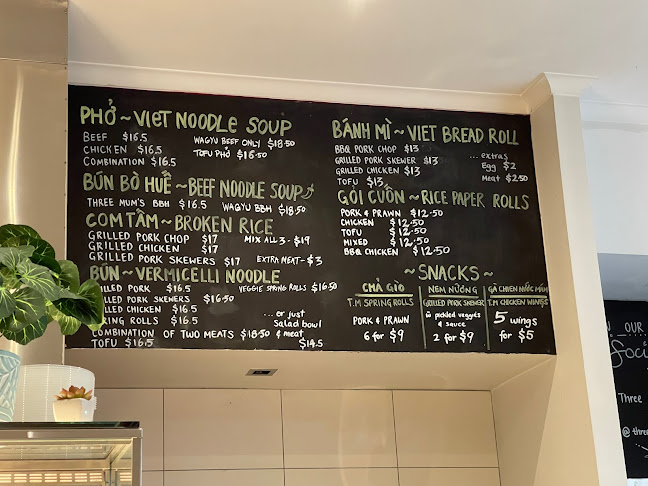 PHỞ ~ VIET NOODLE SOUP
BEEF $16.5
WAGYU BEEF ONLY $18.50
CHICKEN $16.5
TOFU PHỞ $16.50
COMBINATION $16.5
BÚN BÒ HUẾ ~ BEEF NOODLE SOUP
THREE MUM'S BBH $16.5
WAGYU BBH $18.50
COM TẤM ~ BROKEN RICE
GRILLED PORK CHOP $17
MIX ALL 3 - $19
GRILLED CHICKEN $17
GRILLED PORK SKEWERS $17
EXTRA MEAT - $3
BÚN ~ VERMICELLI NOODLE
GRILLED PORK $16.5
VEGGIE SPRING ROLLS $16.50
GRILLED PORK SKEWERS $16.50
GRILLED CHICKEN $16.5
SPRING ROLLS $16.5
...or just
Salad bowl
& meat
$14.5
COMBINATION OF TWO MEATS $18.50
TOFU $16.5
BÁNH MÌ ~ VIET BREAD ROLL
BBQ PORK CHOP $13
GRILLED PORK SKEWER $13
GRILLED CHICKEN $13
TOFU $13
...extras
Egg $2
Meat $2.50
GỎI CUỐN ~ RICE PAPER ROLLS
PORK & PRAWN $12.50
CHICKEN $12.50
TOFU $12.50
MIXED $12.50
BBQ CHICKEN $12.50
~ SNACKS ~
CHẢ GIÒ
T.M SPRING ROLLS
PORK & PRAWN
6 for $9
NEM NƯỚNG
GRILLED PORK SKEWER
w̄ pickled veggies
& sauce
2 for $9
GÀ CHIEN NƯỚC MẮM
T.M CHICKEN WINGS
5 wings
for $5
OUR
Three